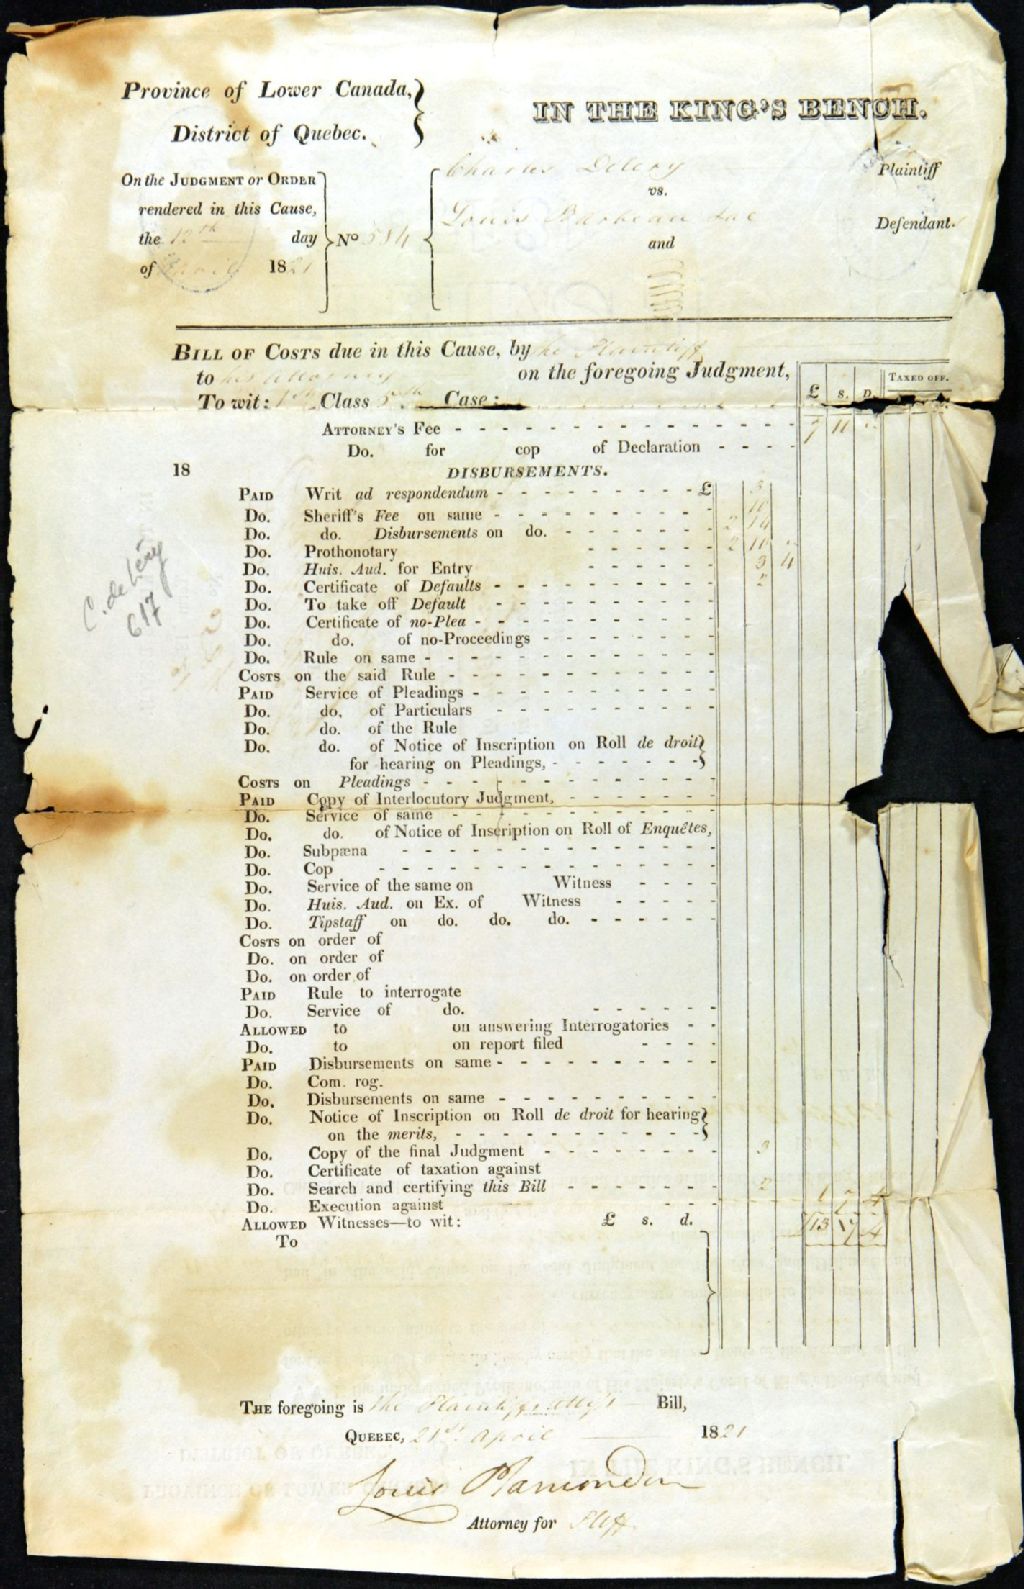 Province of Lower Canada,
District of Quebec.
IN THE KING'S BENCH.
On the JUDGMENT or ORDER
rendered in this Cause,
the 12th day
of April 1821
No 584
Charles Delery Plaintiff
vs.
Louis Barbeau Defendant.
and
BILL OF COSTS due in this Cause, by the Plaintiff
to his Attorney on the foregoing Judgment,
To wit: 1st Class 5th Case:
£ S. D. TAXED OFF.
ATTORNEY'S Fee - - - 7 10
Do. for cop of Declaration - - - -
18 DISBURSEMENTS.
PAID Writ ad respondendum - - - £ 3
Do. Sheriff's Fee on same - - - 10
Do. do. Disbursements on do. - - - 2 14
Do. Prothonotary - - - 2 10
Do. Huis. Aud. for Entry - - - 3 4
Do. Certificate of Defaults - - - 2
Do. To take off Default - - -
Do. Certificate of no-Plea - - -
Do. do. of no-Proceedings - - -
Do. Rule on same - - -
COSTS on the said Rule - - -
PAID Service of Pleadings - - -
Do. do. of Particulars - - -
Do. do. of the Rule
Do. do. of Notice of Inscription on Roll de droit
for hearing on Pleadings, - - -
COSTS on Pleadings - - -
PAID Copy of Interlocutory Judgment, - - -
Do. Service of same - - -
Do. do. of Notice of Inscription on Roll of Enquêtes,
Do. Subpæna - - -
Do. Cop - - -
Do. Service of the same on Witness - - - -
Do. Huis. Aud. on Ex. of Witness - - - - -
Do. Tipstaff on do. do. do. - - - - - -
COSTS on order of
Do. on order of
Do. on order of
PAID Rule to interrogate
Do. Service of do. - - - - - -
ALLOWED to on answering Interrogatories - -
Do. to on report filed - - - -
PAID Disbursements on same - - -
Do. Com. rog.
Do. Disbursements on same - - -
Do. Notice of Inscription on Roll de droit for hearing
on the merits, - - -
Do. Copy of the final Judgment - - - 3
Do. Certificate of taxation against
Do. Search and certifying this Bill - - - 2 6 7 4
Do. Execution against - - -
ALLOWED Witnesses—to wit: £ s. d. £13 17 4
To
C. de Léry
617
THE foregoing is the Plaintiff's Atty's Bill,
QUEBEC, 21st April 1821
Louis Plamondon
Attorney for Plff.